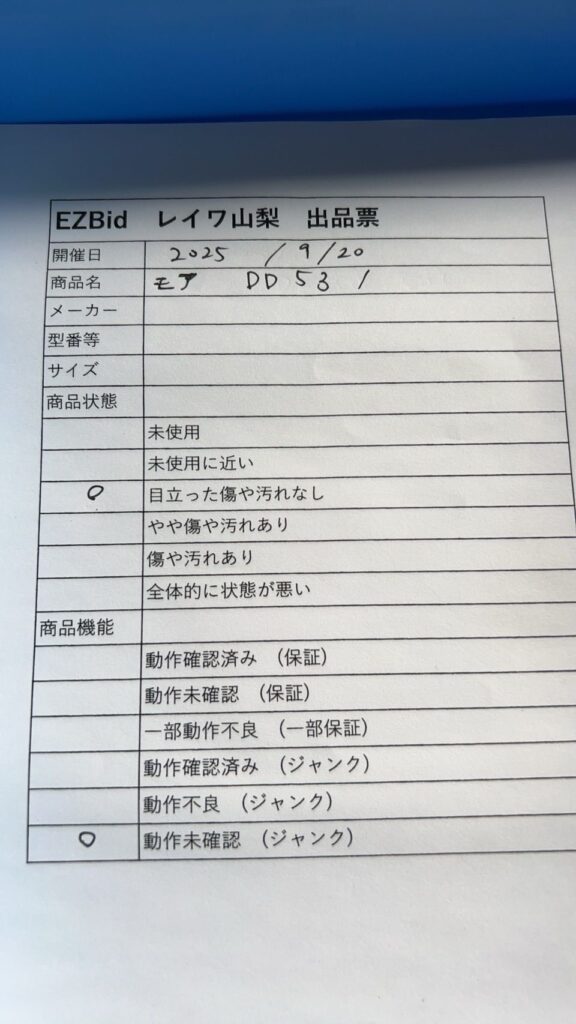 EZBid レイワ山梨 出品票
開催日 2025 / 9 / 20
商品名 モア DD 53 /
メーカー
型番等
サイズ
商品状態
未使用
未使用に近い
○ 目立った傷や汚れなし
やや傷や汚れあり
傷や汚れあり
全体的に状態が悪い
商品機能
動作確認済み (保証)
動作未確認 (保証)
一部動作不良 (一部保証)
動作確認済み (ジャンク)
動作不良 (ジャンク)
○ 動作未確認 (ジャンク)